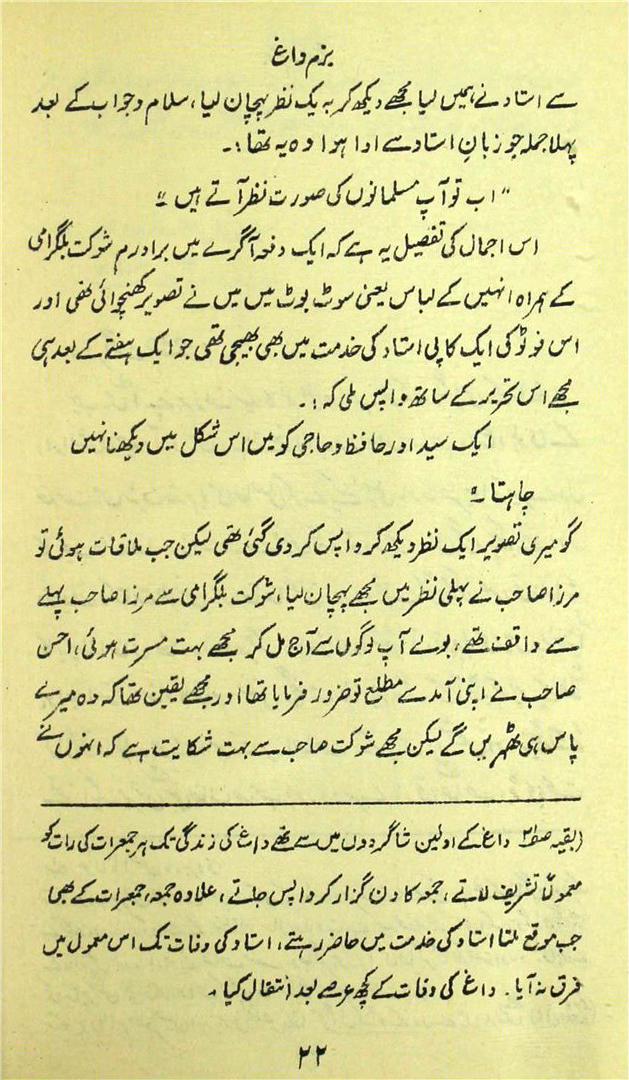 بزم داغ
سے استاد نے ہمیں لیا مجھے دیکھ کر بہ یک نظر پہچان لیا، سلام و جواب کے بعد
پہلا جملہ جو زبانِ استاد سے ادا ہوا وہ یہ تھا:۔
"اب تو آپ مسلمانوں کی صورت نظر آتے ہیں"
اس اجمال کی تفصیل یہ ہے کہ ایک دفعہ آگرے میں برادرم شوکت بلگرامی
کے ہمراہ انہیں کے لباس یعنی سوٹ بوٹ میں میں نے تصویر کھنچوائی تھی اور
اس فوٹو کی ایک کاپی استاد کی خدمت میں بھی بھیجی تھی جو ایک ہفتے کے بعد ہی
مجھے اس تحریر کے ساتھ واپس ملی کہ:۔
ایک سید اور حافظ و حاجی کو میں اس شکل میں دیکھنا نہیں
چاہتا۔"
گو میری تصویر ایک نظر دیکھ کر واپس کر دی گئی تھی لیکن جب ملاقات ہوئی تو
مرزا صاحب نے پہلی نظر میں مجھے پہچان لیا، شوکت بلگرامی سے مرزا صاحب پہلے
سے واقف تھے، بولے آپ لوگوں سے آج مل کر مجھے بہت مسرت ہوئی، احسن
صاحب نے اپنی آمد سے مطلع تو ضرور فرمایا تھا اور مجھے یقین تھا کہ وہ میرے
پاس ہی ٹھہریں گے لیکن مجھے شوکت صاحب سے بہت شکایت ہے کہ انہوں نے
(بقیہ صفحہ ۲۱ داغ کے اولین شاگردوں میں سے تھے داغ کی زندگی تک ہر جمعرات کی رات کو
معمولاً تشریف لاتے، جمعہ کا دن گزار کر واپس جاتے، علاوہ جمعہ، جمعرات کے بھی
جب موقع ملتا استاد کی خدمت میں حاضر رہتے، استاد کی وفات تک اس معمول میں
فرق نہ آیا۔ داغ کی وفات کے کچھ عرصے بعد انتقال کیا۔
۲۲